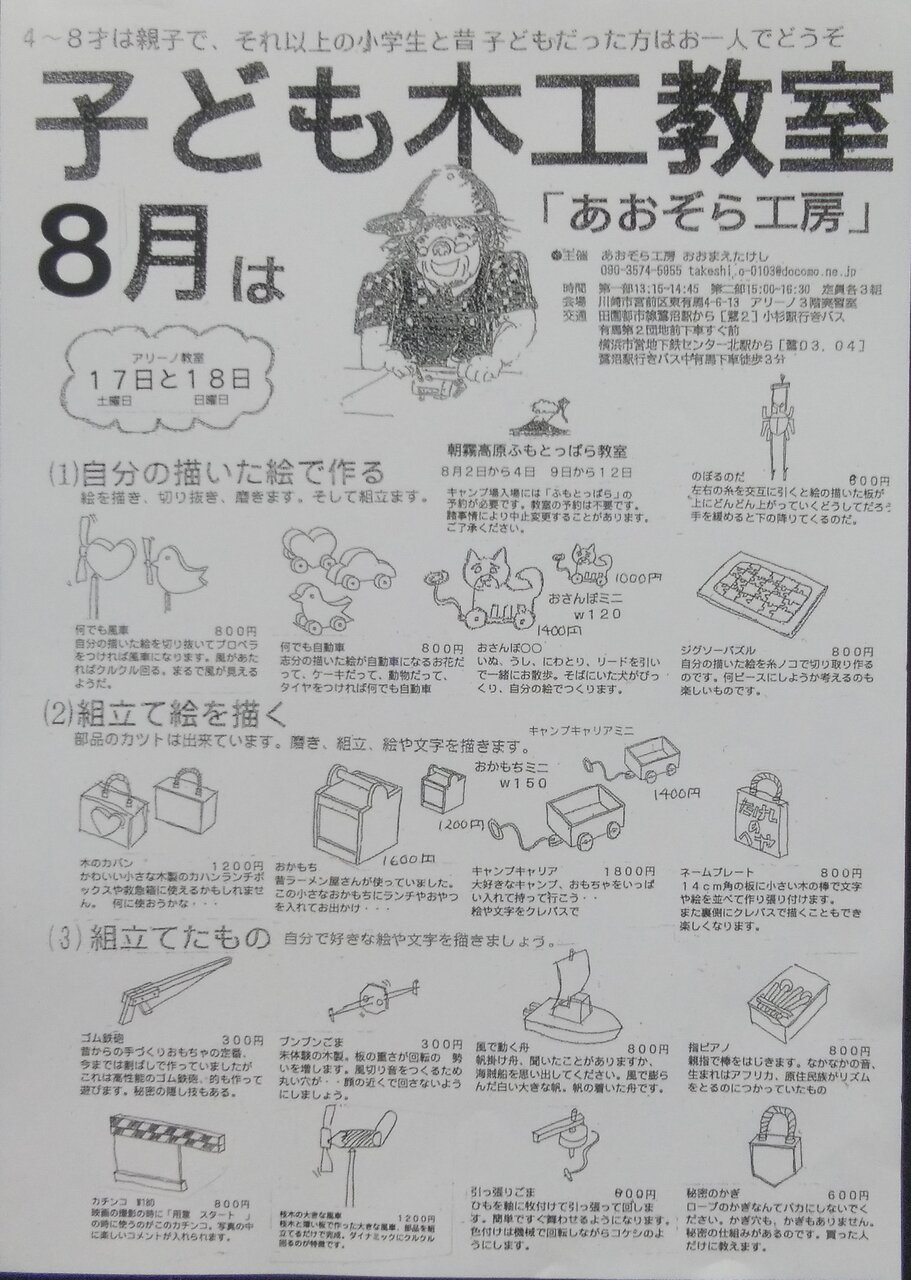 4～8才は親子で、それ以上の小学生と昔子どもだった方はお一人でどうぞ
子ども木工教室
8月は
「あおぞら工房」
●主催 あおぞら工房 おおまえたけし
090-3574-5955 takeshi.o-0103@docomo.ne.jp
時間 第一部13:15-14:45 第二部15:00-16:30 定員各3組
会場 川崎市宮前区東有馬4-6-13 アリーノ3階実習室
交通 田園都市線鷺沼駅から［鷺2］小杉駅行きバス
有馬第2団地前下車すぐ前
横浜市営地下鉄センター北駅から［鷺03，04］
鷺沼駅行きバス中有馬下車徒歩3分
アリーノ教室
17日と18日
土曜日 日曜日
朝霧高原ふもとっぱら教室
8月2日から4日 9日から12日
キャンプ場入場には「ふもとっぱら」の
予約が必要です。教室の予約は不要です。
諸事情により中止変更することがあります。
ご了承ください。
のぼるのだ 600円
左右の糸を交互に引くと絵の描いた板が
上にどんどん上がっていくどうしてだろう
手を緩めると下の降りてくるのだ。
(1)自分の描いた絵で作る
絵を描き、切り抜き、磨きます。そして組立ます。
何でも風車 800円
自分の描いた絵を切り抜いてプロペラ
をつければ風車になります。風があた
ればクルクル回る。まるで風が見える
ようだ。
何でも自動車 800円
志分の描いた絵が自動車になるお花だ
って、ケーキだって、動物だって、
タイヤをつければ何でも自動車
1000円
おさんぽミニ
w120
1400円
おさんぽ〇〇
いぬ、うし、にわとり、リードを引い
て一緒にお散歩。そばにいた犬がびっ
くり、自分の絵でつくります。
ジグソーパズル 800円
自分の描いた絵を糸ノコで切り取り作る
のです。何ピースにしようか考えるのも
楽しいものです。
(2)組立て絵を描く
部品のカットは出来ています。磨き、組立、絵や文字を描きます。
キャンプキャリアミニ
1400円
おかもちミニ
w150
1200円
1600円
たけしのへや
木のカバン 1200円
かわいい小さな木製のカハンランチボ
ックスや救急箱に使えるかもしれませ
ん。 何に使おうかな・・・
おかもち
昔ラーメン屋さんが使っていました。
この小さなおかもちにランチやおやつ
を入れてお出かけ・・・
キャンプキャリア 1800円
大好きなキャンプ、おもちゃをいっぱ
い入れて持って行こう・・
絵や文字をクレパスで
ネームプレート 800円
14cm角の板に小さい木の棒で文字
や絵を並べて作り張り付けます。
また裏側にクレパスで描くこともでき
楽しくなります。
(3)組立てたもの 自分で好きな絵や文字を描きましょう。
ゴム鉄砲 300円
昔からの手づくりおもちゃの定番、
今までは割ばしで作っていましたが
これは高性能のゴム鉄砲、的も作って
遊びます。秘密の隠し技もある。
ブンブンごま 300円
未体験の木製。板の重さが回転の 勢
いを増します。風切り音をつくるため
丸い穴が・・顔の近くで回さないよう
にしましょう。
風で動く舟 800円
帆掛け舟、聞いたことがありますか、
海賊船を思い出してください。風で膨ら
んだ白い大きな帆。帆の着いた舟です。
指ピアノ 800円
親指で棒をはじきます。なかなかの音、
生まれはアフリカ、原住民族がリズム
をとるのにつかっていたもの
カチンコ W180 800円
映画の撮影の時に「用意 スタート 」
の時に使うのがこのカチンコ。写真の中
に楽しいコメントが入れられます。
枝木の大きな風車 1200円
枝木と薄い板で作った大きな風車、部品を組
立てるだけで完成。ダイナミックにクルクル
回るのが特徴です。
引っ張りごま 600円
ひもを軸に枚付けて引っ張って回しま
す。簡単ですぐ舞わせるようになります。
色付けは機械で回転しながらコケシのよ
うにします。
秘密のかぎ 600円
ロープのかぎなんてバカにしないでく
ださい。かぎ穴も、かぎもありません。
秘密の仕組みがあるのです。買った人
だけに教えます。